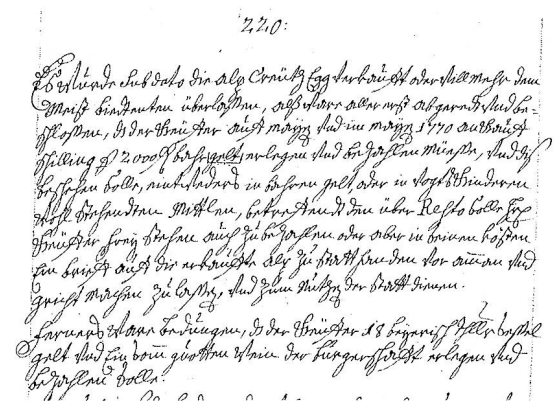 220:
Es wurde sub dato die alp Creütz Egg verkaufft oder vill mehr dem
Meist biedtenten überlassen, alß ware aller erst abgeredt vnd be=
schlossen, das der Keüffer auff mayen vnd im mayen 1770 an Kauff
schilling f 2000 f bahr gelt, erlegen vnd bezahlen müesse, vnd diß
beschehen solle, eintweders in bahrem gelt, oder in vogts Kinderen
wohl stehendten Mittlen, betreffendt den über Resto solle Er
Keüffer frey stehen auch zu bezahlen oder aber in seinen kösten
Ein brieff auff die erkauffte alp zu statt handen vor amman vnd
gricht machen zu lassen, vnd zum Nutzen der statt dienen.
Ferners ware bedungen, das der Keüffer 18 beyerisch thlr sessel
gelt vnd Ein som guotten wein der burgerschafft erlegen vnd
bezahlen solle.